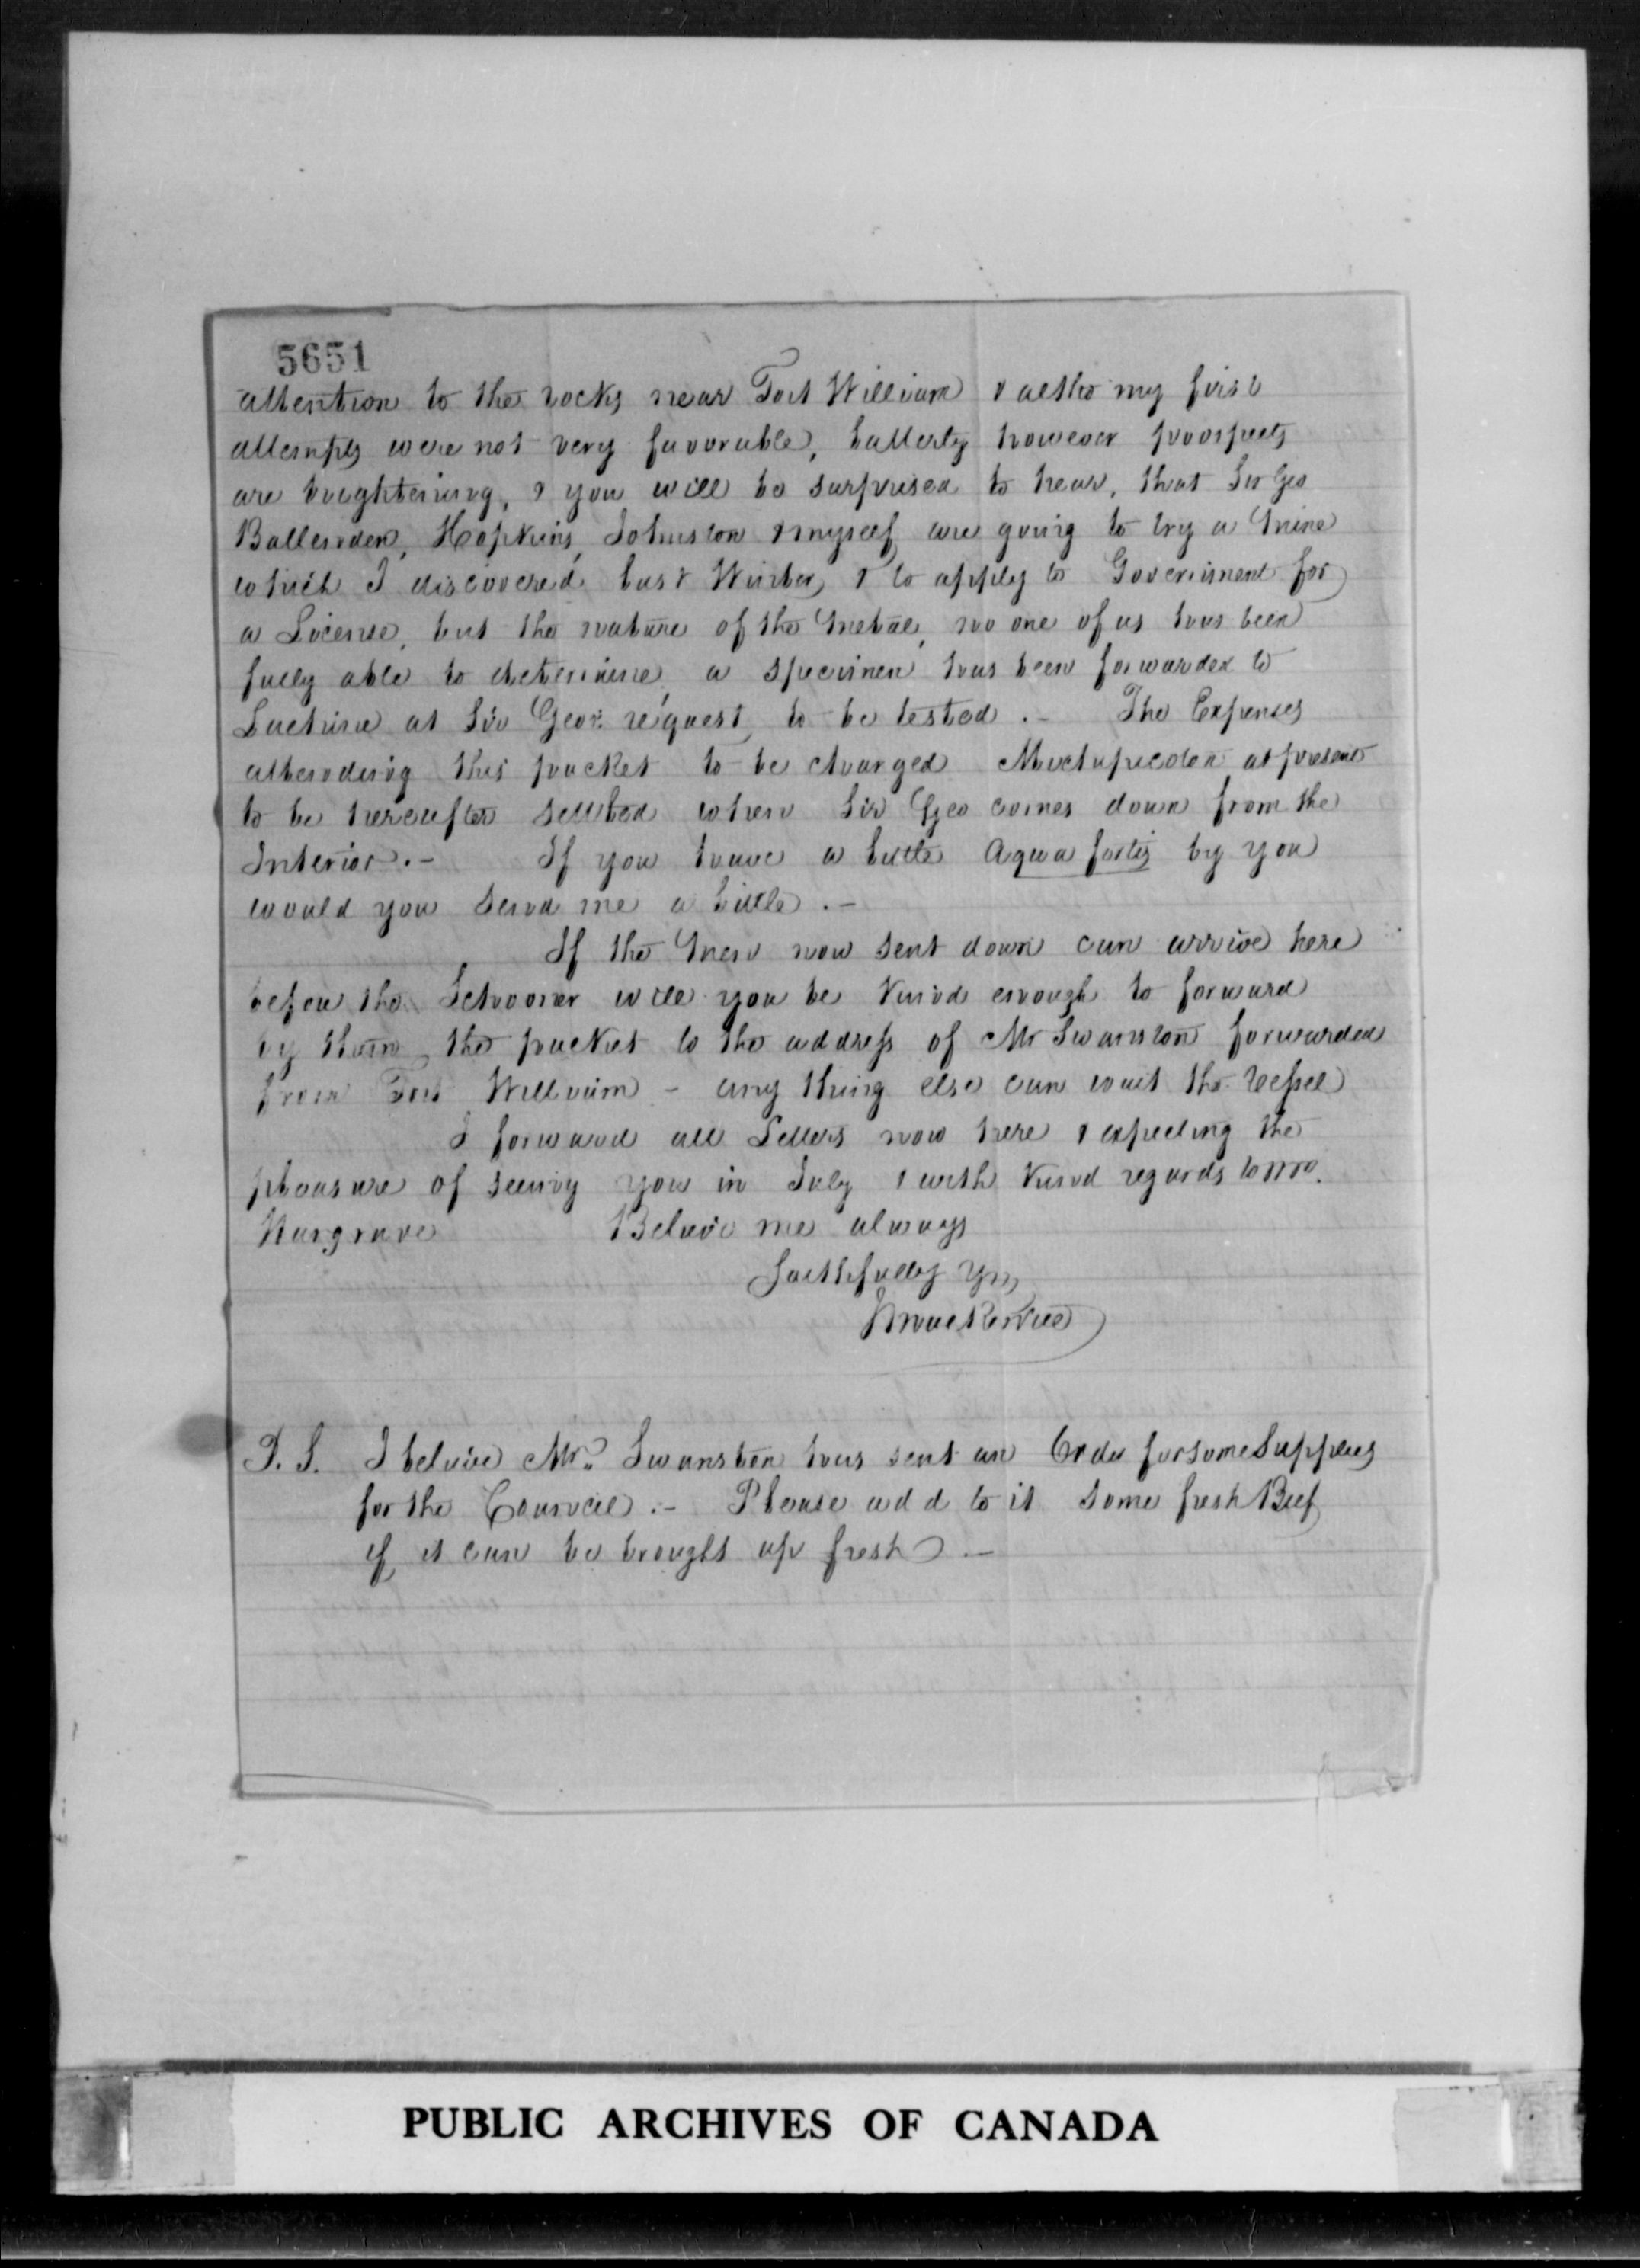 5651
attention to the rocks near Fort William & altho my first
attempts were not very favorable, latterly however prospects
are brightening, & you will be surprised to hear, that Sir Geo
Ballenden, Hopkins, Johnston & myself are going to try a Mine
which I discovered last Winter, & to apply to Government for
a License, but the nature of the Metal, no one of us has been
fully able to determine, a specimen has been forwarded to
Lachine at Sir Geo: request, to be tested .- The Expenses
attending this packet to be charged Michipicoton at present
to be hereafter settled when Sir Geo comes down from the
Interior.- If you have a little Aqua fortis by you
would you send me a little .-
If the Men now sent down can arrive here
before the Schooner will you be kind enough to forward
by them the packet to the address of Mr Swanston forwarded
from Fort William - any thing else can wait the Vessel
I forward all Letters now here & expecting the
pleasure of seeing you in July & with kind regards to Mrs.
Hargrave Believe me always
Faithfully Yrs,
JMackenzie
P.S. I believe Mr. Swanston has sent an Order for some Supplies
for the Council .- Please add to it some fresh Beef
if it can be brought up fresh .-
PUBLIC ARCHIVES OF CANADA